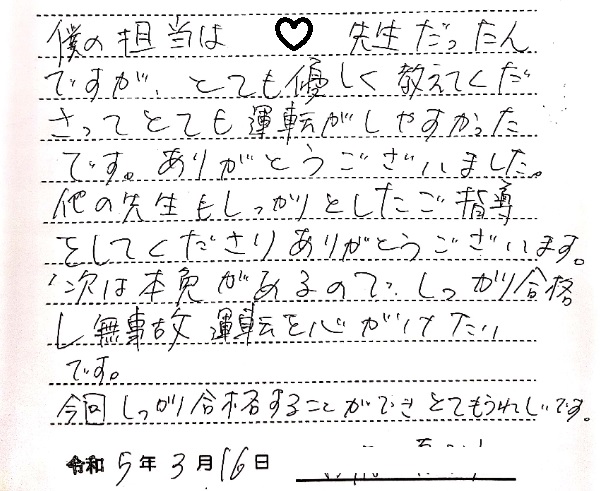 僕の担当は ♡ 先生だったん
ですが、とても優しく教えてくだ
さってとても運転がしやすかった
です。ありがとうございました。
他の先生もしっかりとしたご指導
をしてくださりありがとうございます。
次は本免があるので、しっかり合格
し無事故運転を心がけたい
です。
今回しっかり合格することができとてもうれしいです。
令和5年3月16日